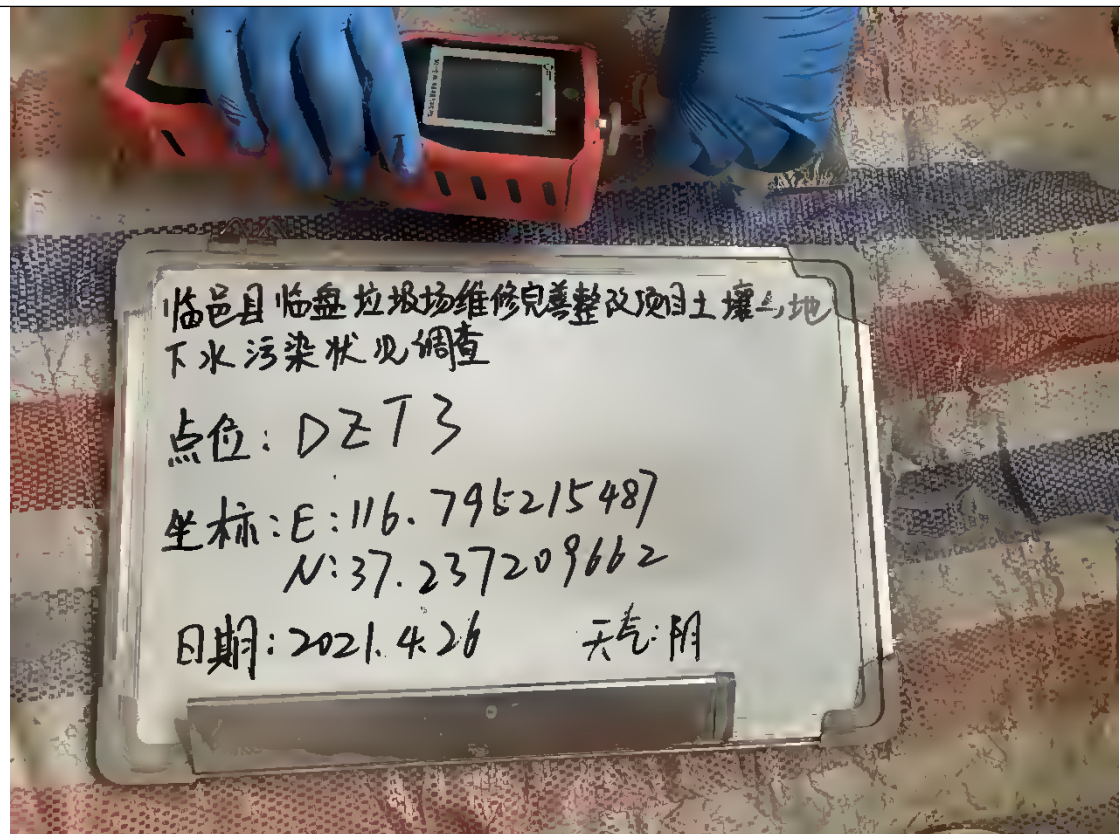 临邑县临盘垃圾场维修完善整改项目土壤与地
下水污染状况调查
点位：DZT3
坐标：E：116.795215487
N：37.237209662
日期：2021.4.26 天气：阴